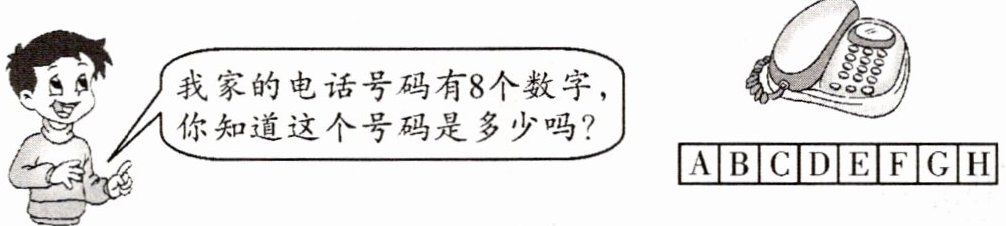 我家的电话号码有8个数字，
你知道这个号码是多少吗？
A B C D E F G H